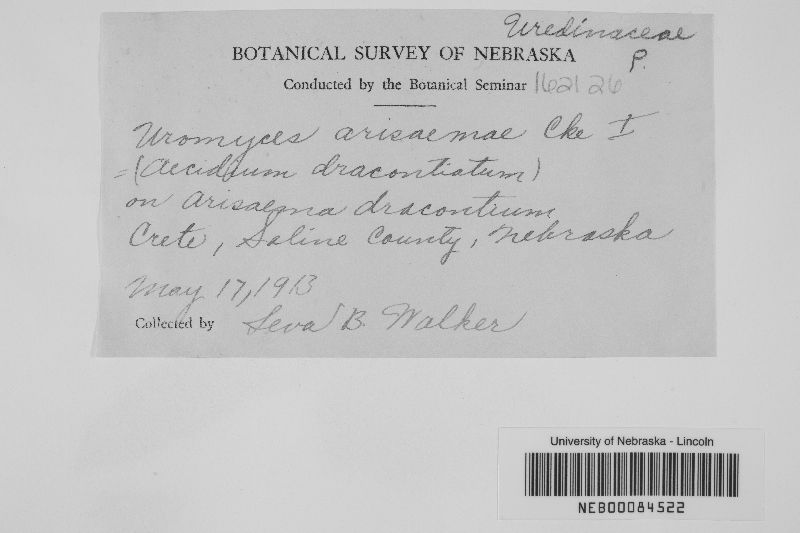 Uredinaceae
BOTANICAL SURVEY OF NEBRASKA
P.
Conducted by the Botanical Seminar 162126
Uromyces arisaemae Cke I
=(Aecidium dracontiatum)
on Arisaema dracontium
Crete, Saline County, Nebraska
May 17, 1913
Collected by Leva B. Walker
University of Nebraska - Lincoln
NEB00084522